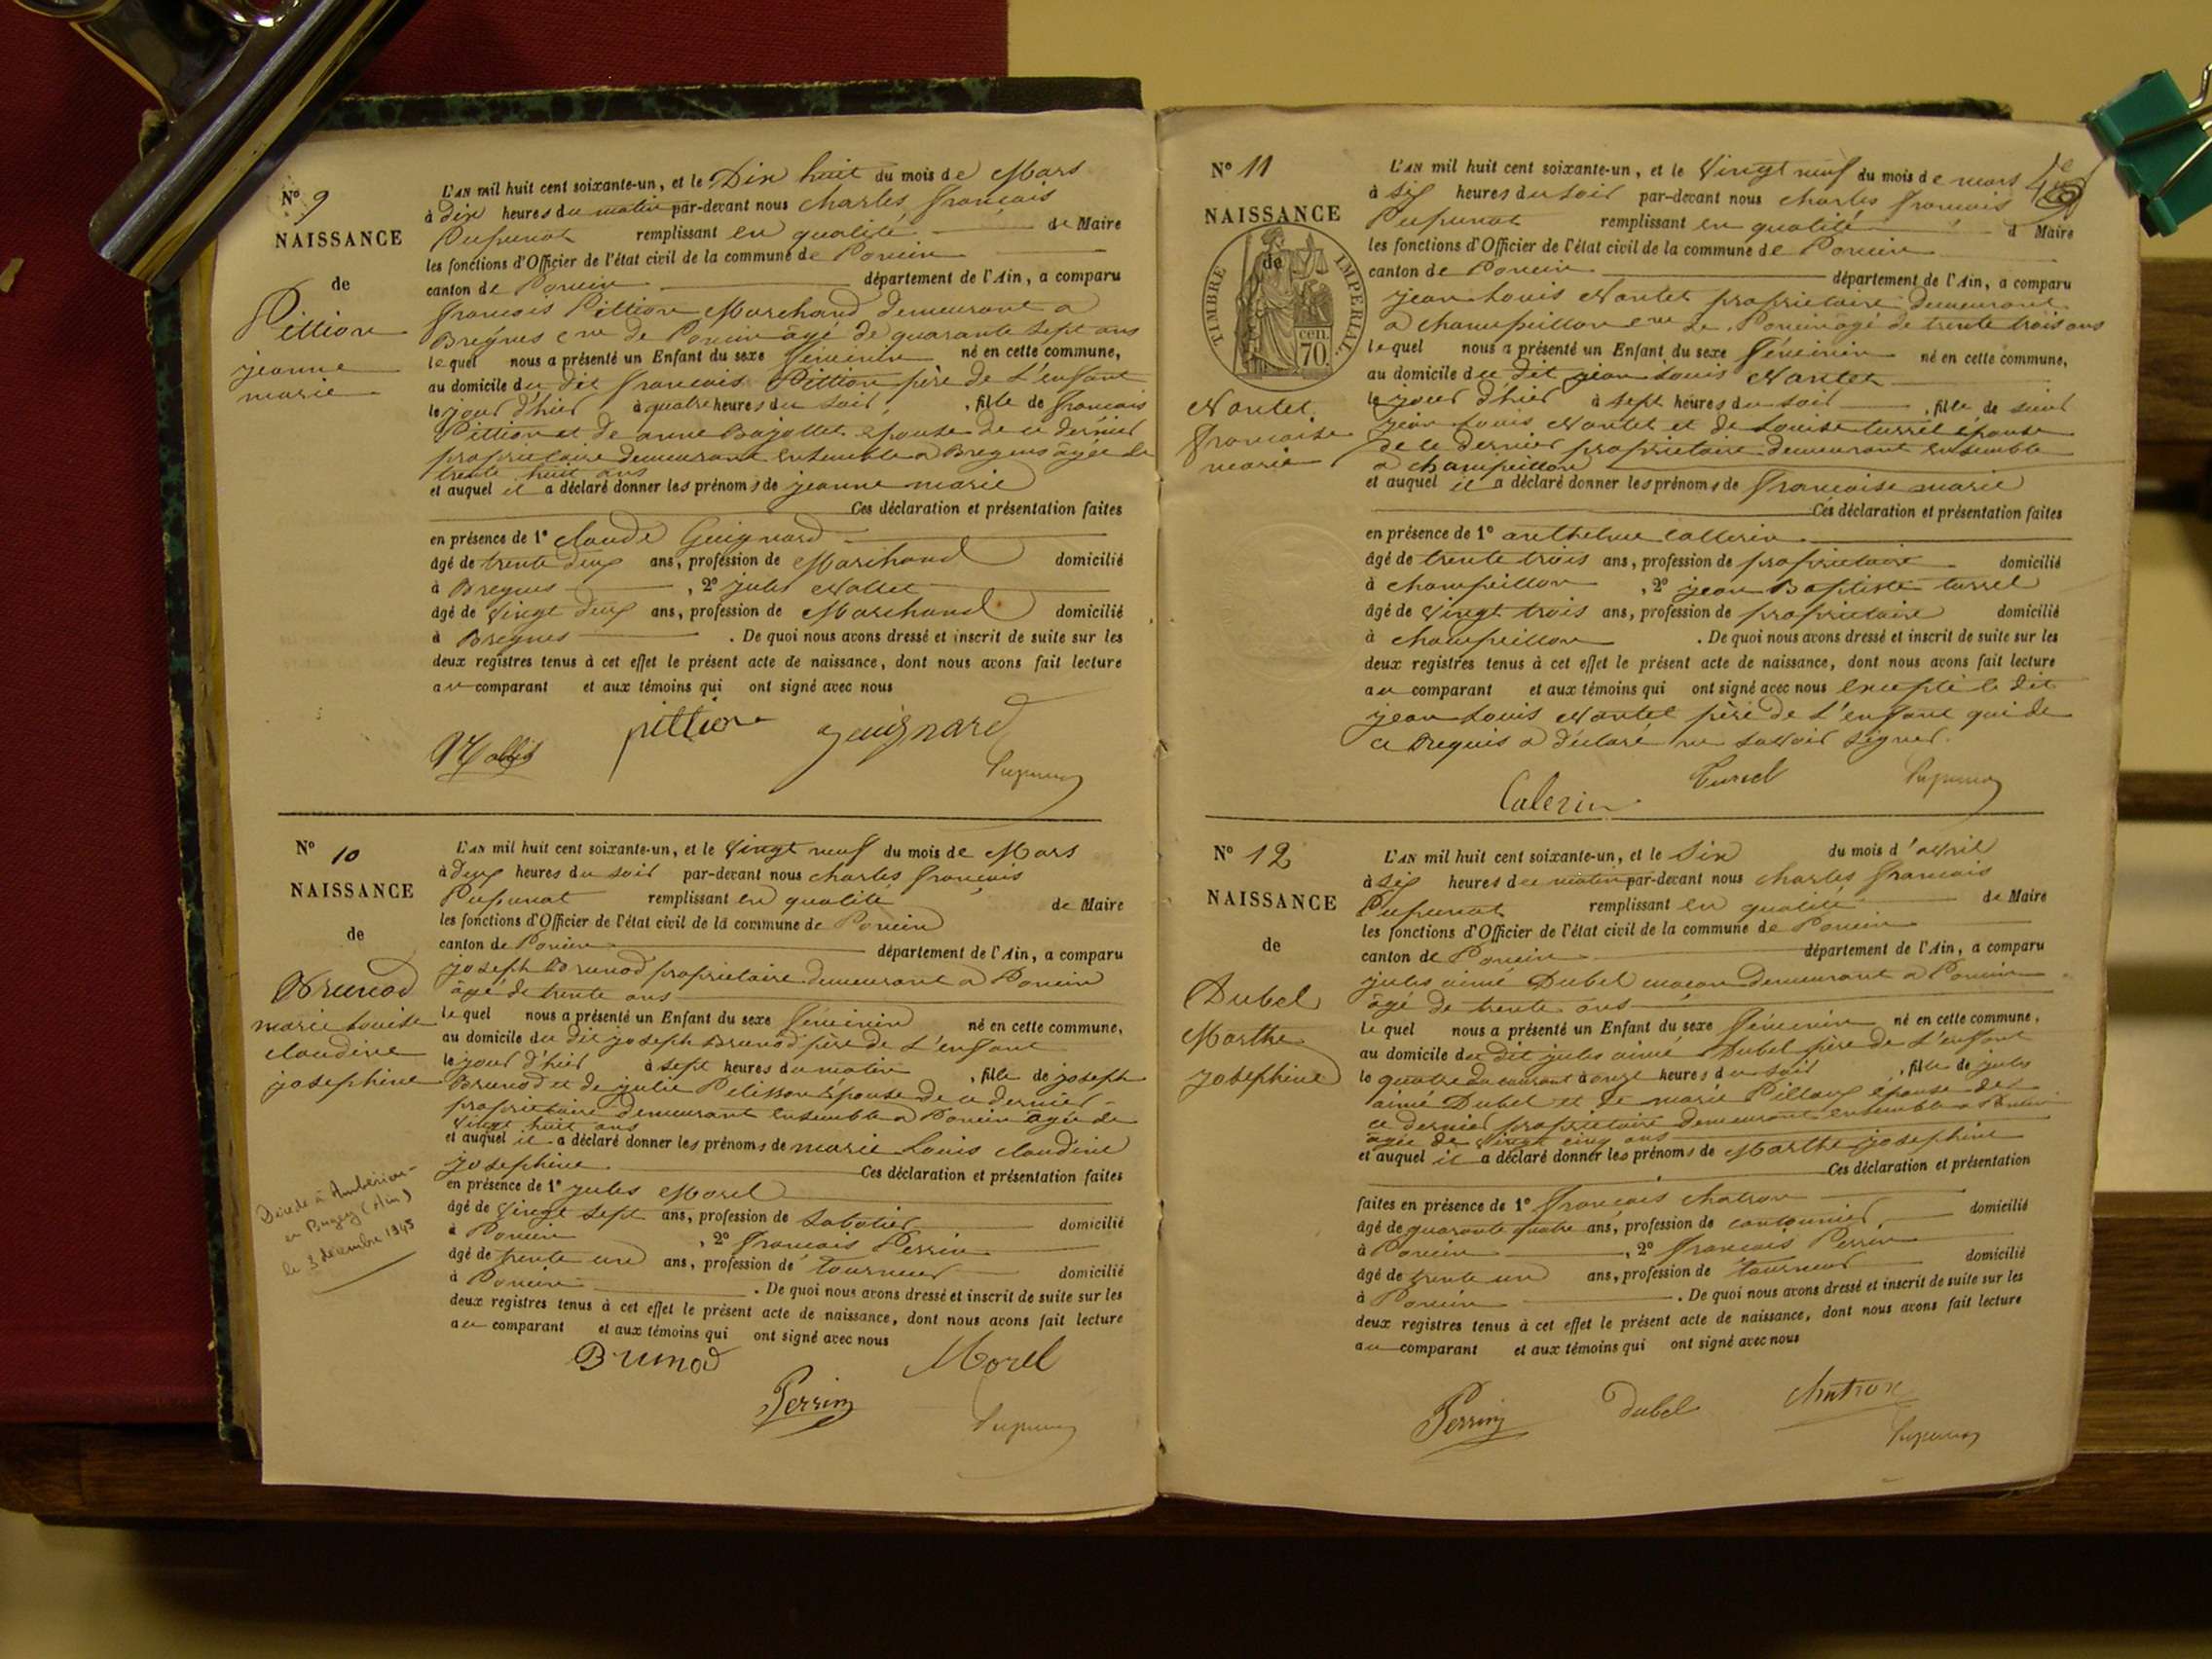 N° 9
NAISSANCE
de
Pittion
jeanne
marie
L'AN mil huit cent soixante-un, et le Dix huit du mois de Mars
à dix heures du matin par-devant nous charles francois
Pupunat remplissant en qualité de Maire
les fonctions d'Officier de l'état civil de la commune de Poncin
canton de Poncin département de l'Ain, a comparu
francois Pittion Marchand demeurant a
Bregnes cne de Poncin âgé de quarante sept ans
lequel nous a présenté un Enfant du sexe féminin né en cette commune,
au domicile du dit francois Pittion père de l'enfant
le jour d'hier à quatre heures du soir, fille de francois
Pittion et de anne Bajollet épouse de ce dernier
propriétaire demeurant ensemble a Bregnes âgée de
trente huit ans
et auquel il a déclaré donner les prénoms de jeanne marie
Ces déclaration et présentation faites
en présence de 1° claude Guignard
âgé de trente deux ans, profession de Marchand domicilié
à Bregnes, 2° jules Nallet
âgé de vingt deux ans, profession de Marchand domicilié
à Bregnes. De quoi nous avons dressé et inscrit de suite sur les
deux registres tenus à cet effet le présent acte de naissance, dont nous avons fait lecture
au comparant et aux témoins qui ont signé avec nous
pittion guignard
Pupunat
N° 10
NAISSANCE
de
Brunod
marie louise
claudine
josephine
Décédée à Ambérieu-
en Bugey (Ain)
le 3 décembre 1945
L'AN mil huit cent soixante-un, et le vingt neuf du mois de Mars
à deux heures du soir par-devant nous charles francois
Pupunat remplissant en qualité de Maire
les fonctions d'Officier de l'état civil de la commune de Poncin
canton de Poncin département de l'Ain, a comparu
joseph Brunod propriétaire demeurant a Poncin
âgé de trente ans
lequel nous a présenté un Enfant du sexe féminin né en cette commune,
au domicile du dit joseph Brunod père de l'enfant
le jour d'hier à sept heures du matin, fille de joseph
Brunod et de julie Pelisson épouse de ce dernier
propriétaire demeurant ensemble a Poncin âgée de
vingt huit ans
et auquel il a déclaré donner les prénoms de marie Louis claudine
josephine Ces déclaration et présentation faites
en présence de 1° jules Morel
âgé de vingt sept ans, profession de sabotier domicilié
à Poncin, 2° francois Perrin
âgé de trente un ans, profession de tourneur domicilié
à Poncin. De quoi nous avons dressé et inscrit de suite sur les
deux registres tenus à cet effet le présent acte de naissance, dont nous avons fait lecture
au comparant et aux témoins qui ont signé avec nous
Brunod Morel
Perrin
Pupunat
N° 11
NAISSANCE
de
TIMBRE IMPERIAL
70 cen.
Nantet
francoise
marie
L'AN mil huit cent soixante-un, et le vingt neuf du mois de mars
à six heures du soir par-devant nous charles francois
Pupunat remplissant en qualité d Maire
les fonctions d'Officier de l'état civil de la commune de Poncin
canton de Poncin département de l'Ain, a comparu
jean Louis Nantet propriétaire demeurant
a champeillon cne de Poncin âgé de trente trois ans
lequel nous a présenté un Enfant du sexe féminin né en cette commune,
au domicile du dit jean Louis Nantet
le jour d'hier à sept heures du soir, fille de
jean Louis Nantet et de Louise turrel épouse
de ce dernier propriétaire demeurant ensemble
a champeillon
et auquel il a déclaré donner les prénoms de francoise marie
Ces déclaration et présentation faites
en présence de 1° anthelme callerin
âgé de trente trois ans, profession de propriétaire domicilié
à champeillon, 2° jean Baptiste turrel
âgé de vingt trois ans, profession de propriétaire domicilié
à champeillon. De quoi nous avons dressé et inscrit de suite sur les
deux registres tenus à cet effet le présent acte de naissance, dont nous avons fait lecture
au comparant et aux témoins qui ont signé avec nous excepté le dit
jean Louis Nantet père de l'enfant qui de
ce Requis a déclaré ne savoir signer.
Calerin Turrel Pupunat
N° 12
NAISSANCE
de
Dubel
Marthe
josephine
L'AN mil huit cent soixante-un, et le Six du mois d'avril
à six heures du matin par-devant nous charles francois
Pupunat remplissant en qualité de Maire
les fonctions d'Officier de l'état civil de la commune de Poncin
canton de Poncin département de l'Ain, a comparu
jules aimé Dubel macon demeurant a Poncin
âgé de trente ans
lequel nous a présenté un Enfant du sexe féminin né en cette commune,
au domicile du dit jules aimé Dubel père de l'enfant
le quatre du courant à onze heures du soir, fille de jules
aimé Dubel et de marie Pilloux épouse de
ce dernier propriétaire demeurant ensemble a Poncin
âgée de vingt cinq ans
et auquel il a déclaré donner les prénoms de Marthe josephine
Ces déclaration et présentation
faites en présence de 1° francois chatron
âgé de quarante quatre ans, profession de cantonnier domicilié
à Poncin, 2° francois Perrin
âgé de trente un ans, profession de tourneur domicilié
à Poncin. De quoi nous avons dressé et inscrit de suite sur les
deux registres tenus à cet effet le présent acte de naissance, dont nous avons fait lecture
au comparant et aux témoins qui ont signé avec nous
Perrin Dubel Chatron
Pupunat